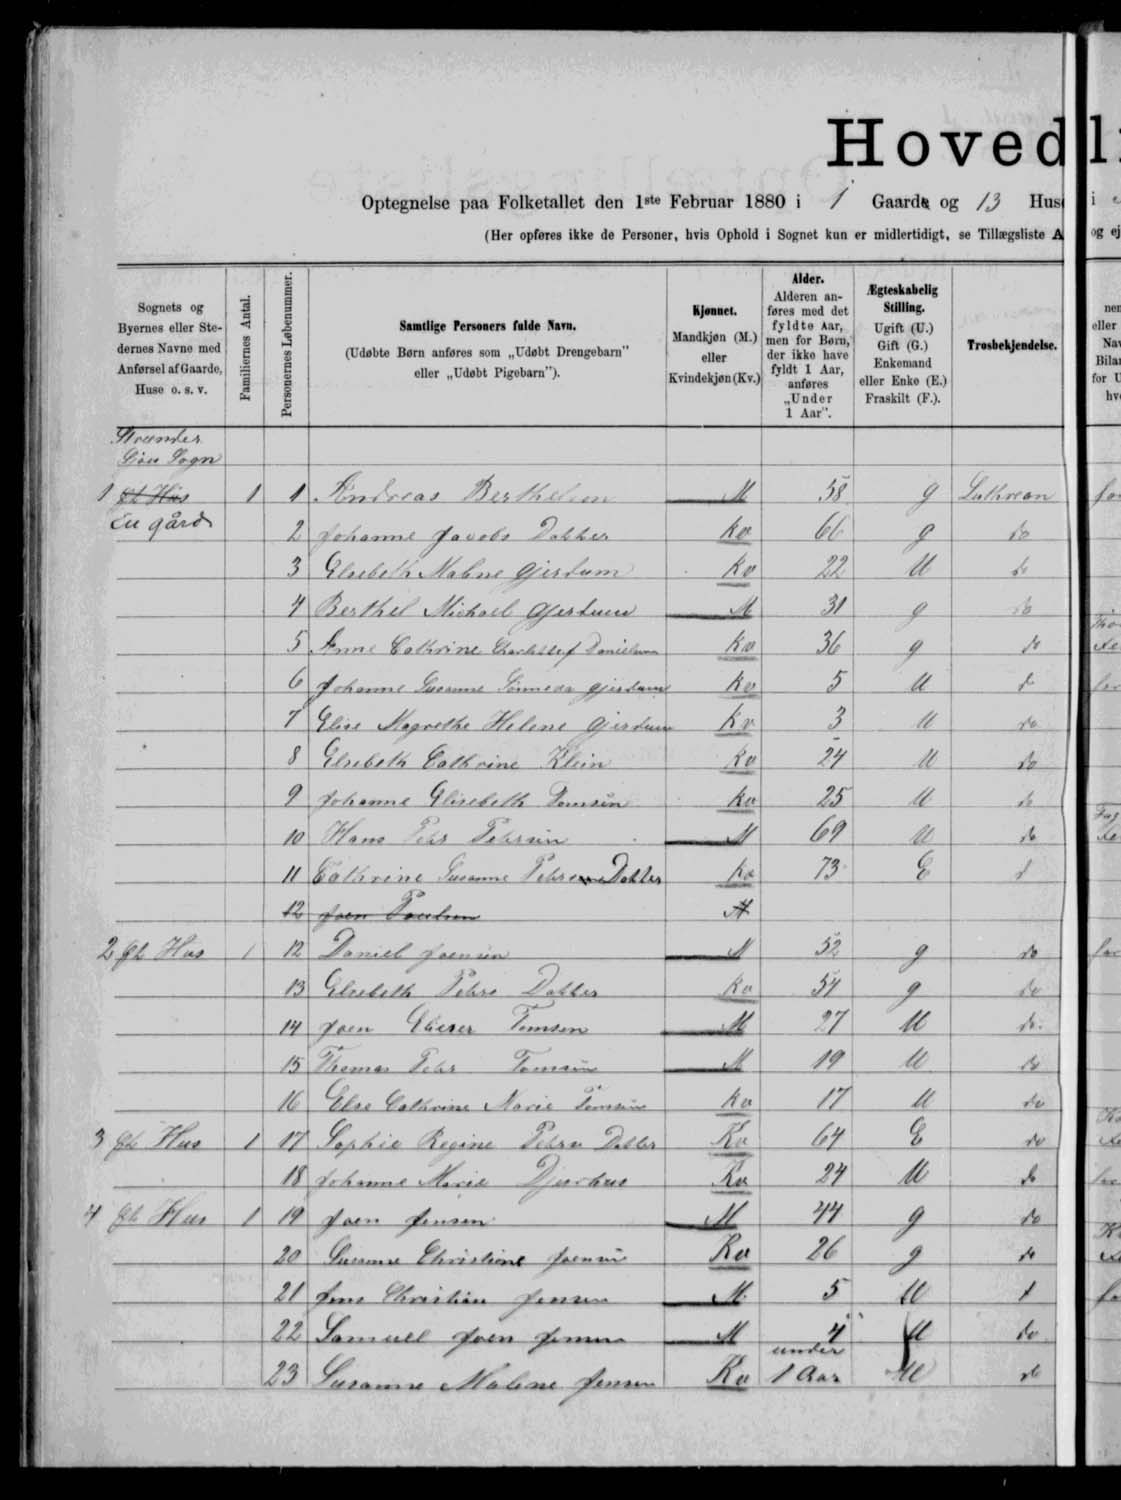 Hovedl
Optegnelse paa Folketallet den 1ste Februar 1880 i 1 Gaarde og 13 Huse i
(Her opføres ikke de Personer, hvis Ophold i Sognet kun er midlertidigt, se Tillægsliste A og ej
Sognets og Byernes eller Stedernes Navne med Anførsel af Gaarde, Huse o. s. v.
Familiernes Antal.
Personernes Løbenummer.
Samtlige Personers fulde Navn.
(Udøbte Børn anføres som „Udøbt Drengebarn"
eller „Udøbt Pigebarn").
Kjønnet.
Mandkjøn (M.)
eller
Kvindekjøn (Kv.)
Alder.
Alderen an-
føres med det
fyldte Aar,
men for Børn,
der ikke have
fyldt 1 Aar,
anføres
„Under
1 Aar".
Ægteskabelig
Stilling.
Ugift (U.)
Gift (G.)
Enkemand
eller Enke (E.)
Fraskilt (F.).
Trosbekjendelse.
Sogn
1 Hus 1 1 Andreas Berthelsen M 58 g Luthrean
En gård
2 Johanne Jacobs Datter Kv 66 g do
3 Elsebeth Malene Gjerdum Kv 22 U do
4 Berthel Michael Gjerdum M 31 g do
5 Anne Cathrine Danielsen Kv 36 g do
6 Johanne Susanne Gjerdum Kv 5 U d
7 Elise Magrethe Helene Gjerdum Kv 3 U do
8 Elsebeth Cathrine Klein Kv 24 U do
9 Johanne Elisebeth Tomsen Kv 25 U do
10 Hans Petr Petersen M 69 U do
11 Cathrine Susanne Peters Datter Kv 73 E d
12 Joen Poulsen M
2 Hus 1 12 Daniel Joensen M 52 g do
13 Elsebeth Petrs Datter Kv 54 g do
14 Joen Elieser Tomsen M 27 U do
15 Thomas Petr Tomsen M 19 U do
16 Else Cathrine Marie Tomsen Kv 17 U do
3 Hus 1 17 Sophie Regine Petrs Datter Kv 64 E do
18 Johanne Marie Djurhus Kv 24 U do
4 Hus 1 19 Joen Jensen M 44 g do
20 Susanne Christine Joensen Kv 26 g do
21 Jens Christian Jensen M 5 U d
22 Samuel Joen Jensen M 4 U do
23 Susanne Malene Jensen Kv under 1 Aar U do